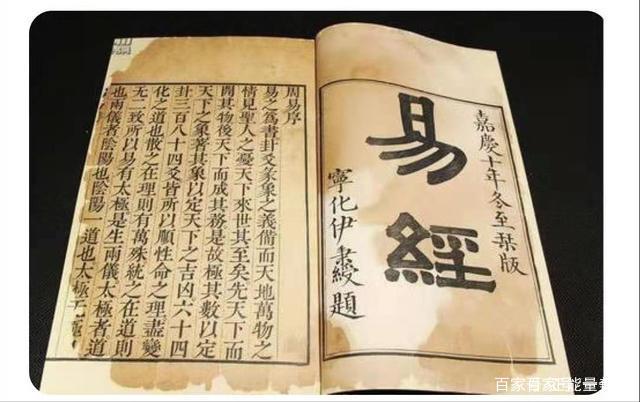 嘉慶十年冬至栞版
易經
寧化伊秉綬題
周易序
易之為書卦爻彖象之義備而天地萬物之
情見聖人之憂天下來世其至矣先天下而
開其物後天下而成其務是故極其數以定
天下之象著其象以定天下之吉凶六十四
卦三百八十四爻皆所以順性命之理盡變
化之道也散之在理則有萬殊統之在道則
无二致所以易有太極是生兩儀太極者道
也兩儀者陰陽也陰陽一道也太極无極
百家 正能量